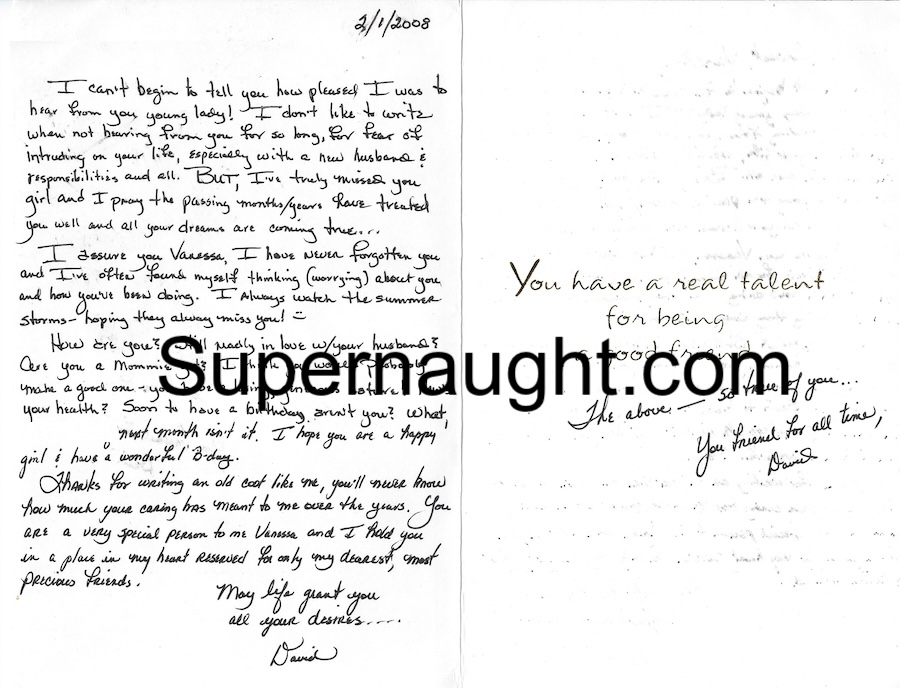 2/1/2008
I can't begin to tell you how pleased I was to
hear from you young lady! I don't like to write
when not hearing from you for so long, for fear of
intruding on your life, especially with a new husband &
responsibilities and all. BUT, I've truly missed you
girl and I pray the passing months/years have treated
you well and all your dreams are coming true...
I assure you Vanessa, I have never forgotten you
and I've often found myself thinking (worrying) about you
and how you've been doing. I Always watch the summer
storms - hoping they alway miss you!
How are you? Still madly in love w/your husband?
Are you a Mommie yet? I think you would probably
make a good one - you
your health? Soon to have a birthday aren't you? What,
next month isn't it. I hope you are a happy
girl & have a wonderful B-day.
Thanks for writing an old coot like me, you'll never know
how much your caring has meant to me over the years. You
are a very special person to me Vanessa and I hold you
in a place in my heart reserved for only my dearest, most
precious friends.
May life grant you
all your desires....
David
You have a real talent
for being
a good friend.
The above - so true of you...
You friend for all time,
David
Supernaught.com